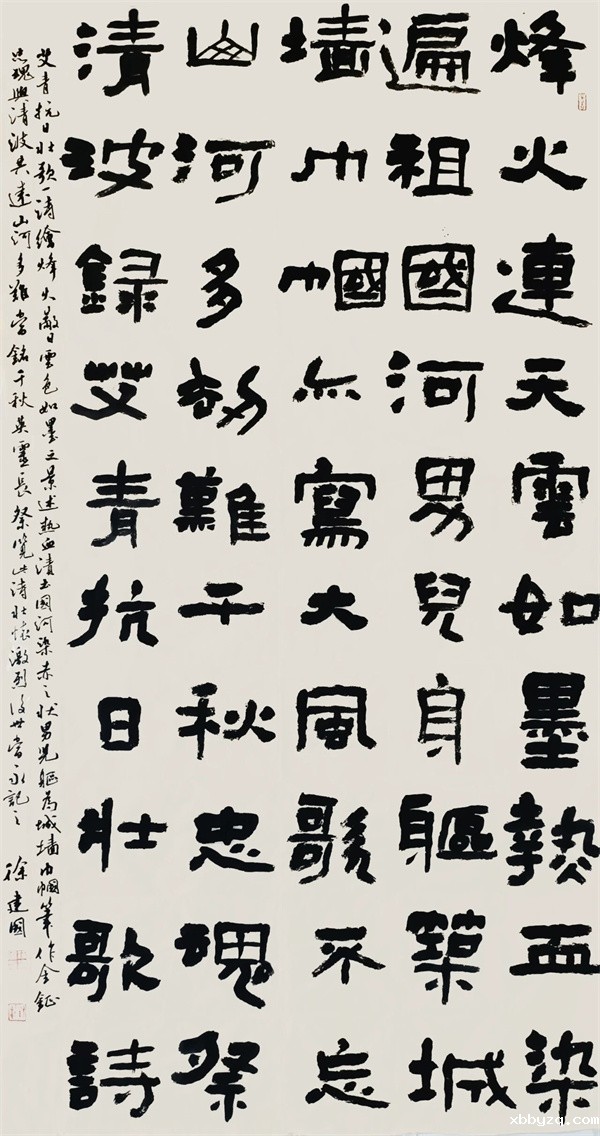 烽火連天雲如墨熱血染
遍祖國河男兒身軀築城
墻巾幗亦寫大風歌不忘
山河多劫難千秋忠魂祭
清波録艾青抗日壯歌詩
艾青抗日壯歌一詩繪烽火蔽日雲色如墨之景述熱血漬土國河染赤之狀男兒軀為城墻巾幗筆作金鉦
忠魂與清波共遠山河多難當銘千秋英靈長祭覽此詩壯懷激烈後世當永記之 徐建國
xbbyzq.com